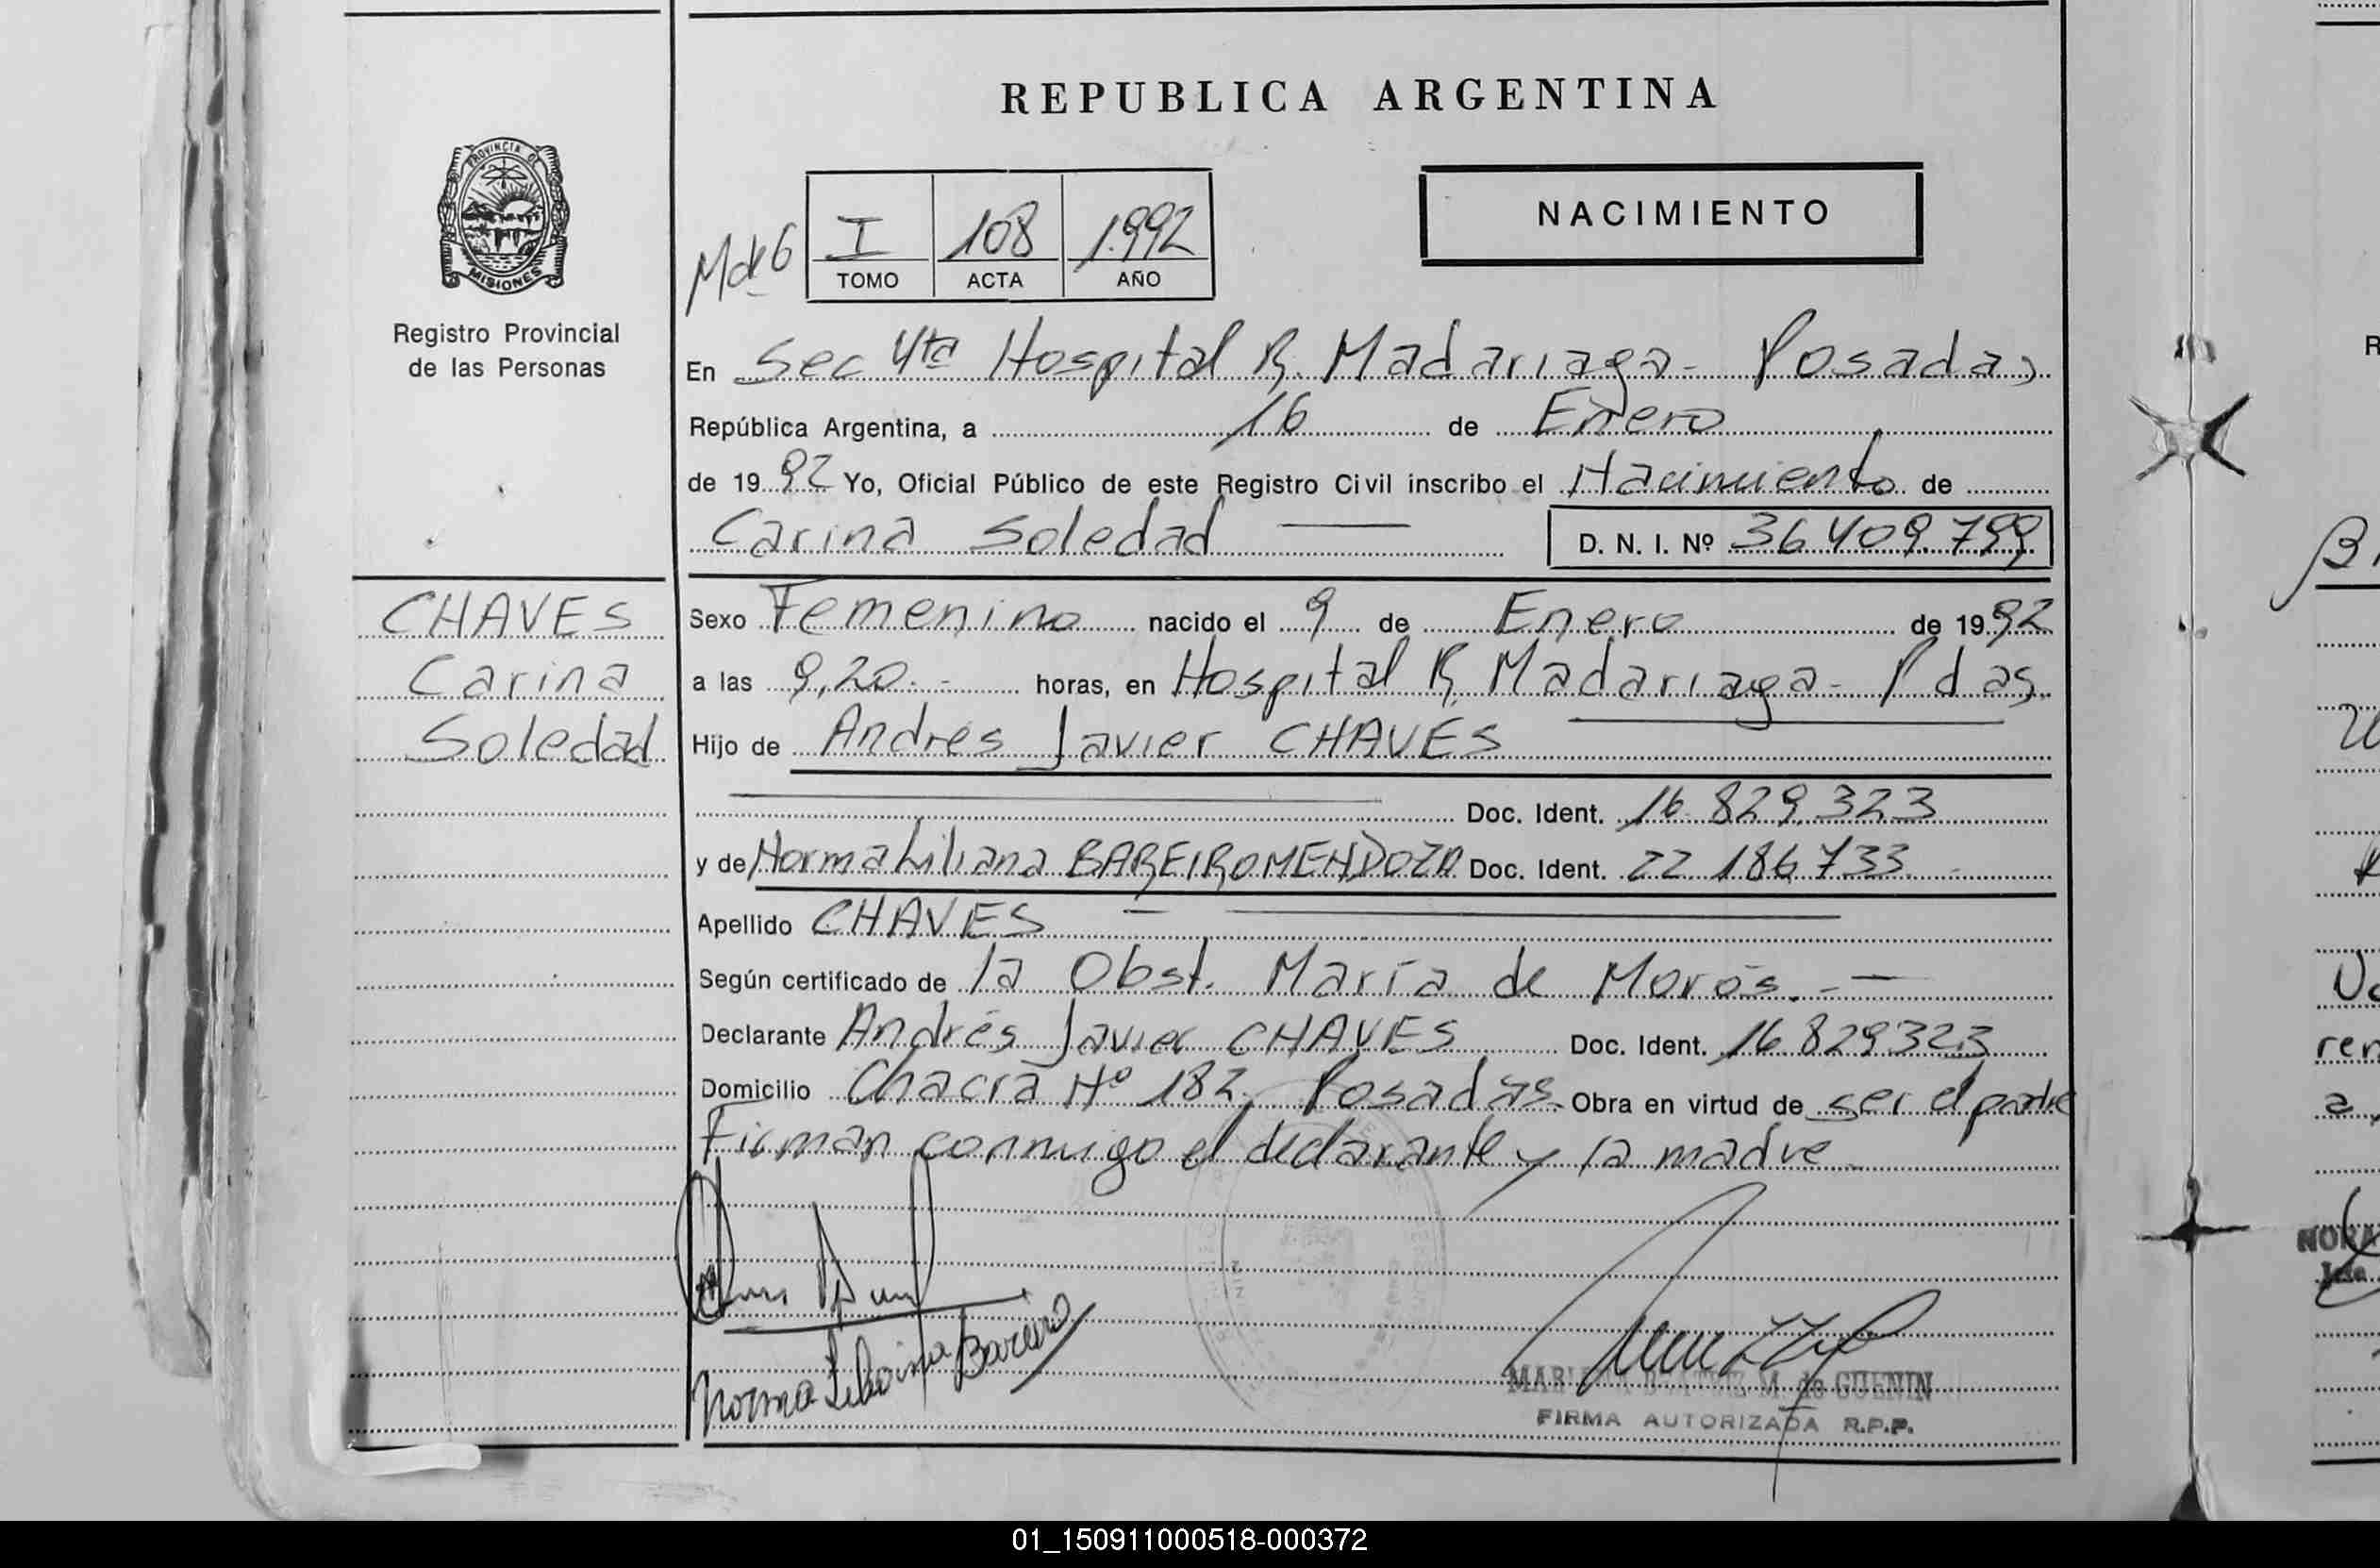 REPUBLICA ARGENTINA
PROVINCIA DE
MISIONES
Registro Provincial
de las Personas
I 108 1.992
TOMO ACTA AÑO
NACIMIENTO
En Sec 4ta Hospital R. Madariaga - Posadas
República Argentina, a 16 de Enero
de 1992 Yo, Oficial Público de este Registro Civil inscribo el Nacimiento de
Carina Soledad D. N. I. Nº 36.409.799
CHAVES
Carina
Soledad
Sexo Femenino nacido el 9 de Enero de 1992
a las 9,20.- horas, en Hospital R. Madariaga - Pdas.
Hijo de Andrés Javier CHAVES
Doc. Ident. 16.829.323
y de Norma Liliana BAREIRO MENDOZA Doc. Ident. 22.186.733.-
Apellido CHAVES
Según certificado de la Obst. María de Morós.-
Declarante Andrés Javier CHAVES Doc. Ident. 16.829323
Domicilio Chacra Nº 182, Posadas. Obra en virtud de ser el padre
Firman conmigo el declarante y la madre
Norma Bareiro
M. de GUENIN
FIRMA AUTORIZADA R.P.P.
01_150911000518-000372